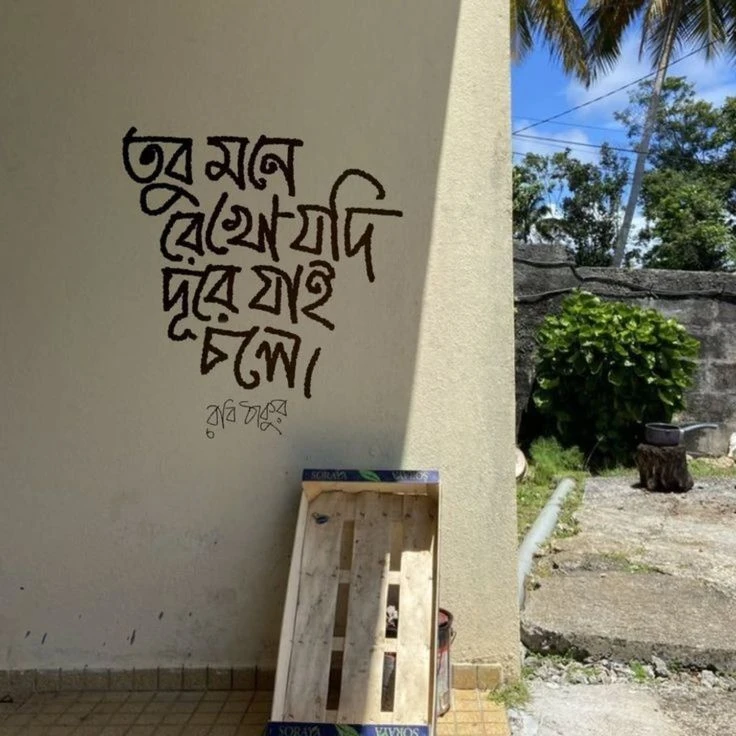 তবু মনে
রেখো যদি
দূরে যাই
চলে।
রবি ঠাকুর
SORAYA
SORAYA SORAYA